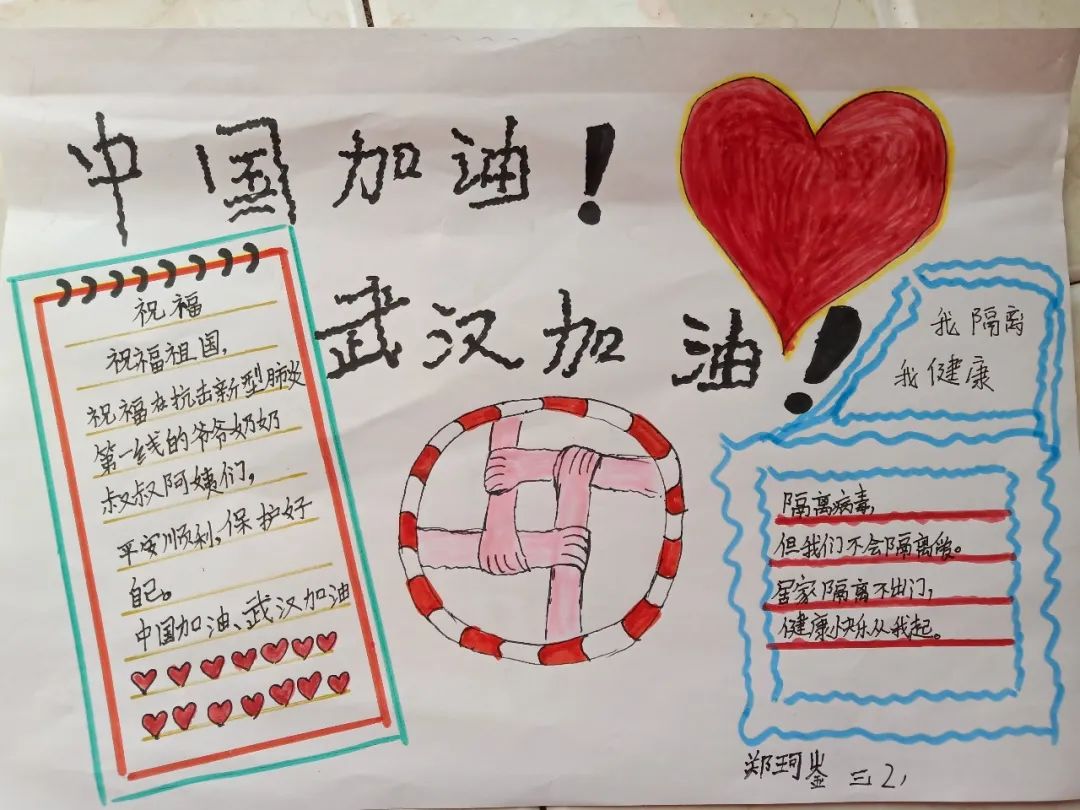 中国加油!
武汉加油!
祝福
祝福祖国,
祝福在抗击新型肺炎
第一线的爷爷奶奶
叔叔阿姨们,
平安顺利,保护好
自己。
中国加油、武汉加油
我隔离
我健康
隔离病毒,
但我们不会隔离爱。
居家隔离不出门,
健康快乐从我起。
郑珂鉴 三2,